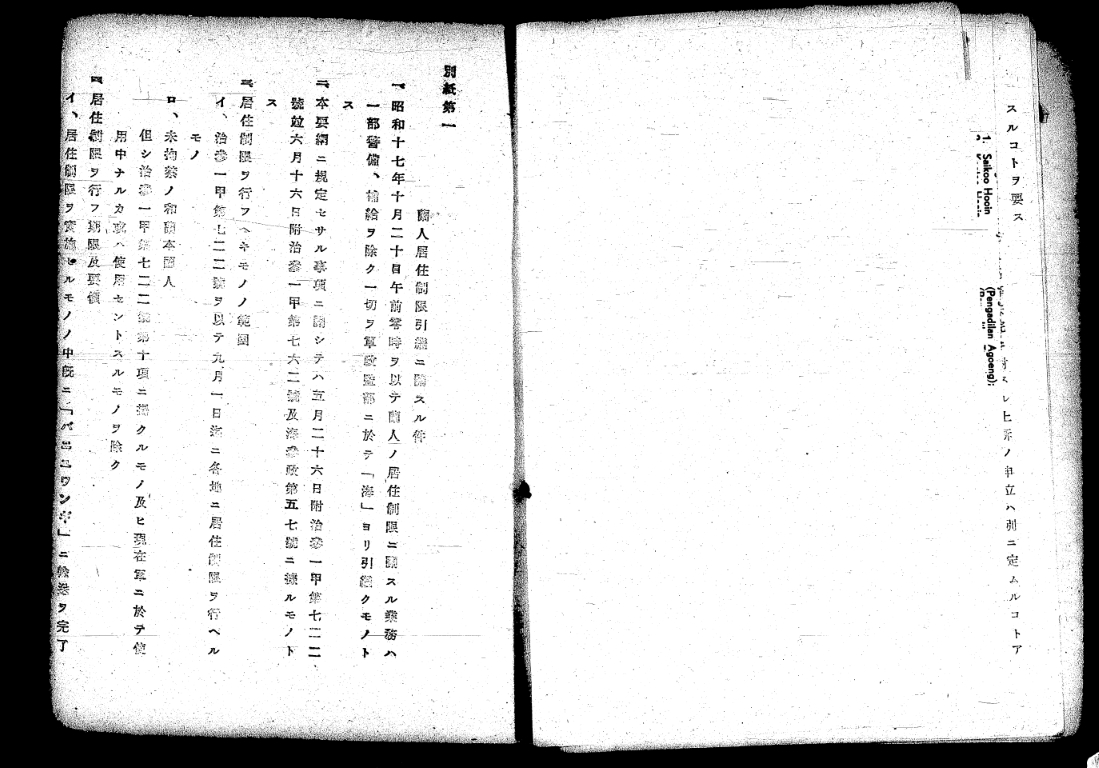 スルコトヲ要ス
1. Saikoo Hooin
(Pengadilan Agoeng);
対スル上訴ノ申立ハ別ニ定ムルコトア
別紙第一
蘭人居住制限引継ニ關スル件
一、昭和十七年十月二十日午前零時ヲ以テ蘭人ノ居住制限ニ關スル業務ハ
一部警備、補給ヲ除ク一切ヲ軍政監部ニ於テ「海」ヨリ引継クモノト
ス
二、本要綱ニ規定セサル事項ニ關シテハ五月二十六日附治參一甲第七二二
號竝六月十六日附治參一甲第七六二號及海參政第五七號ニ據ルモノト
ス
三、居住制限ヲ行フヘキモノノ範圍
イ、治參一甲第七二二號ヲ以テ九月一日迄ニ各地ニ居住制限ヲ行ヘル
モノ
ロ、未拘禁ノ和蘭本國人
但シ治參一甲第七二二號第十項ニ掲クルモノ及ヒ現在軍ニ於テ使
用中ナルカ或ハ使用セントスルモノヲ除ク
居住制限ヲ行フ期限及要領
イ、居住制限ヲ實施セルモノノ中既ニ「バニユワンギ」ニ輸送ヲ完了